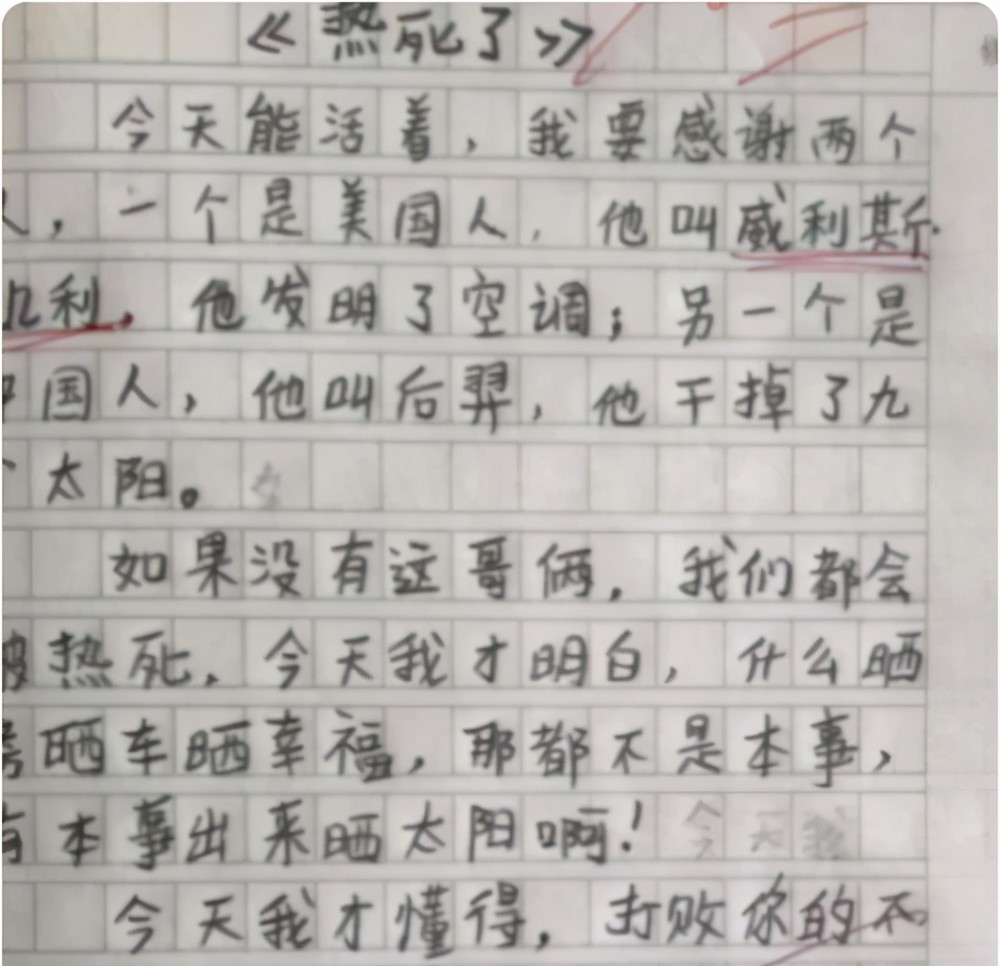 《热死了》
今天能活着，我要感谢两个
人，一个是美国人，他叫威利斯·
几利，他发明了空调；另一个是
中国人，他叫后羿，他干掉了九
个太阳。
如果没有这哥俩，我们都会
被热死，今天我才明白，什么晒
晒车晒幸福，那都不是本事，
有本事出来晒太阳啊！
今天我才懂得，打败你的不